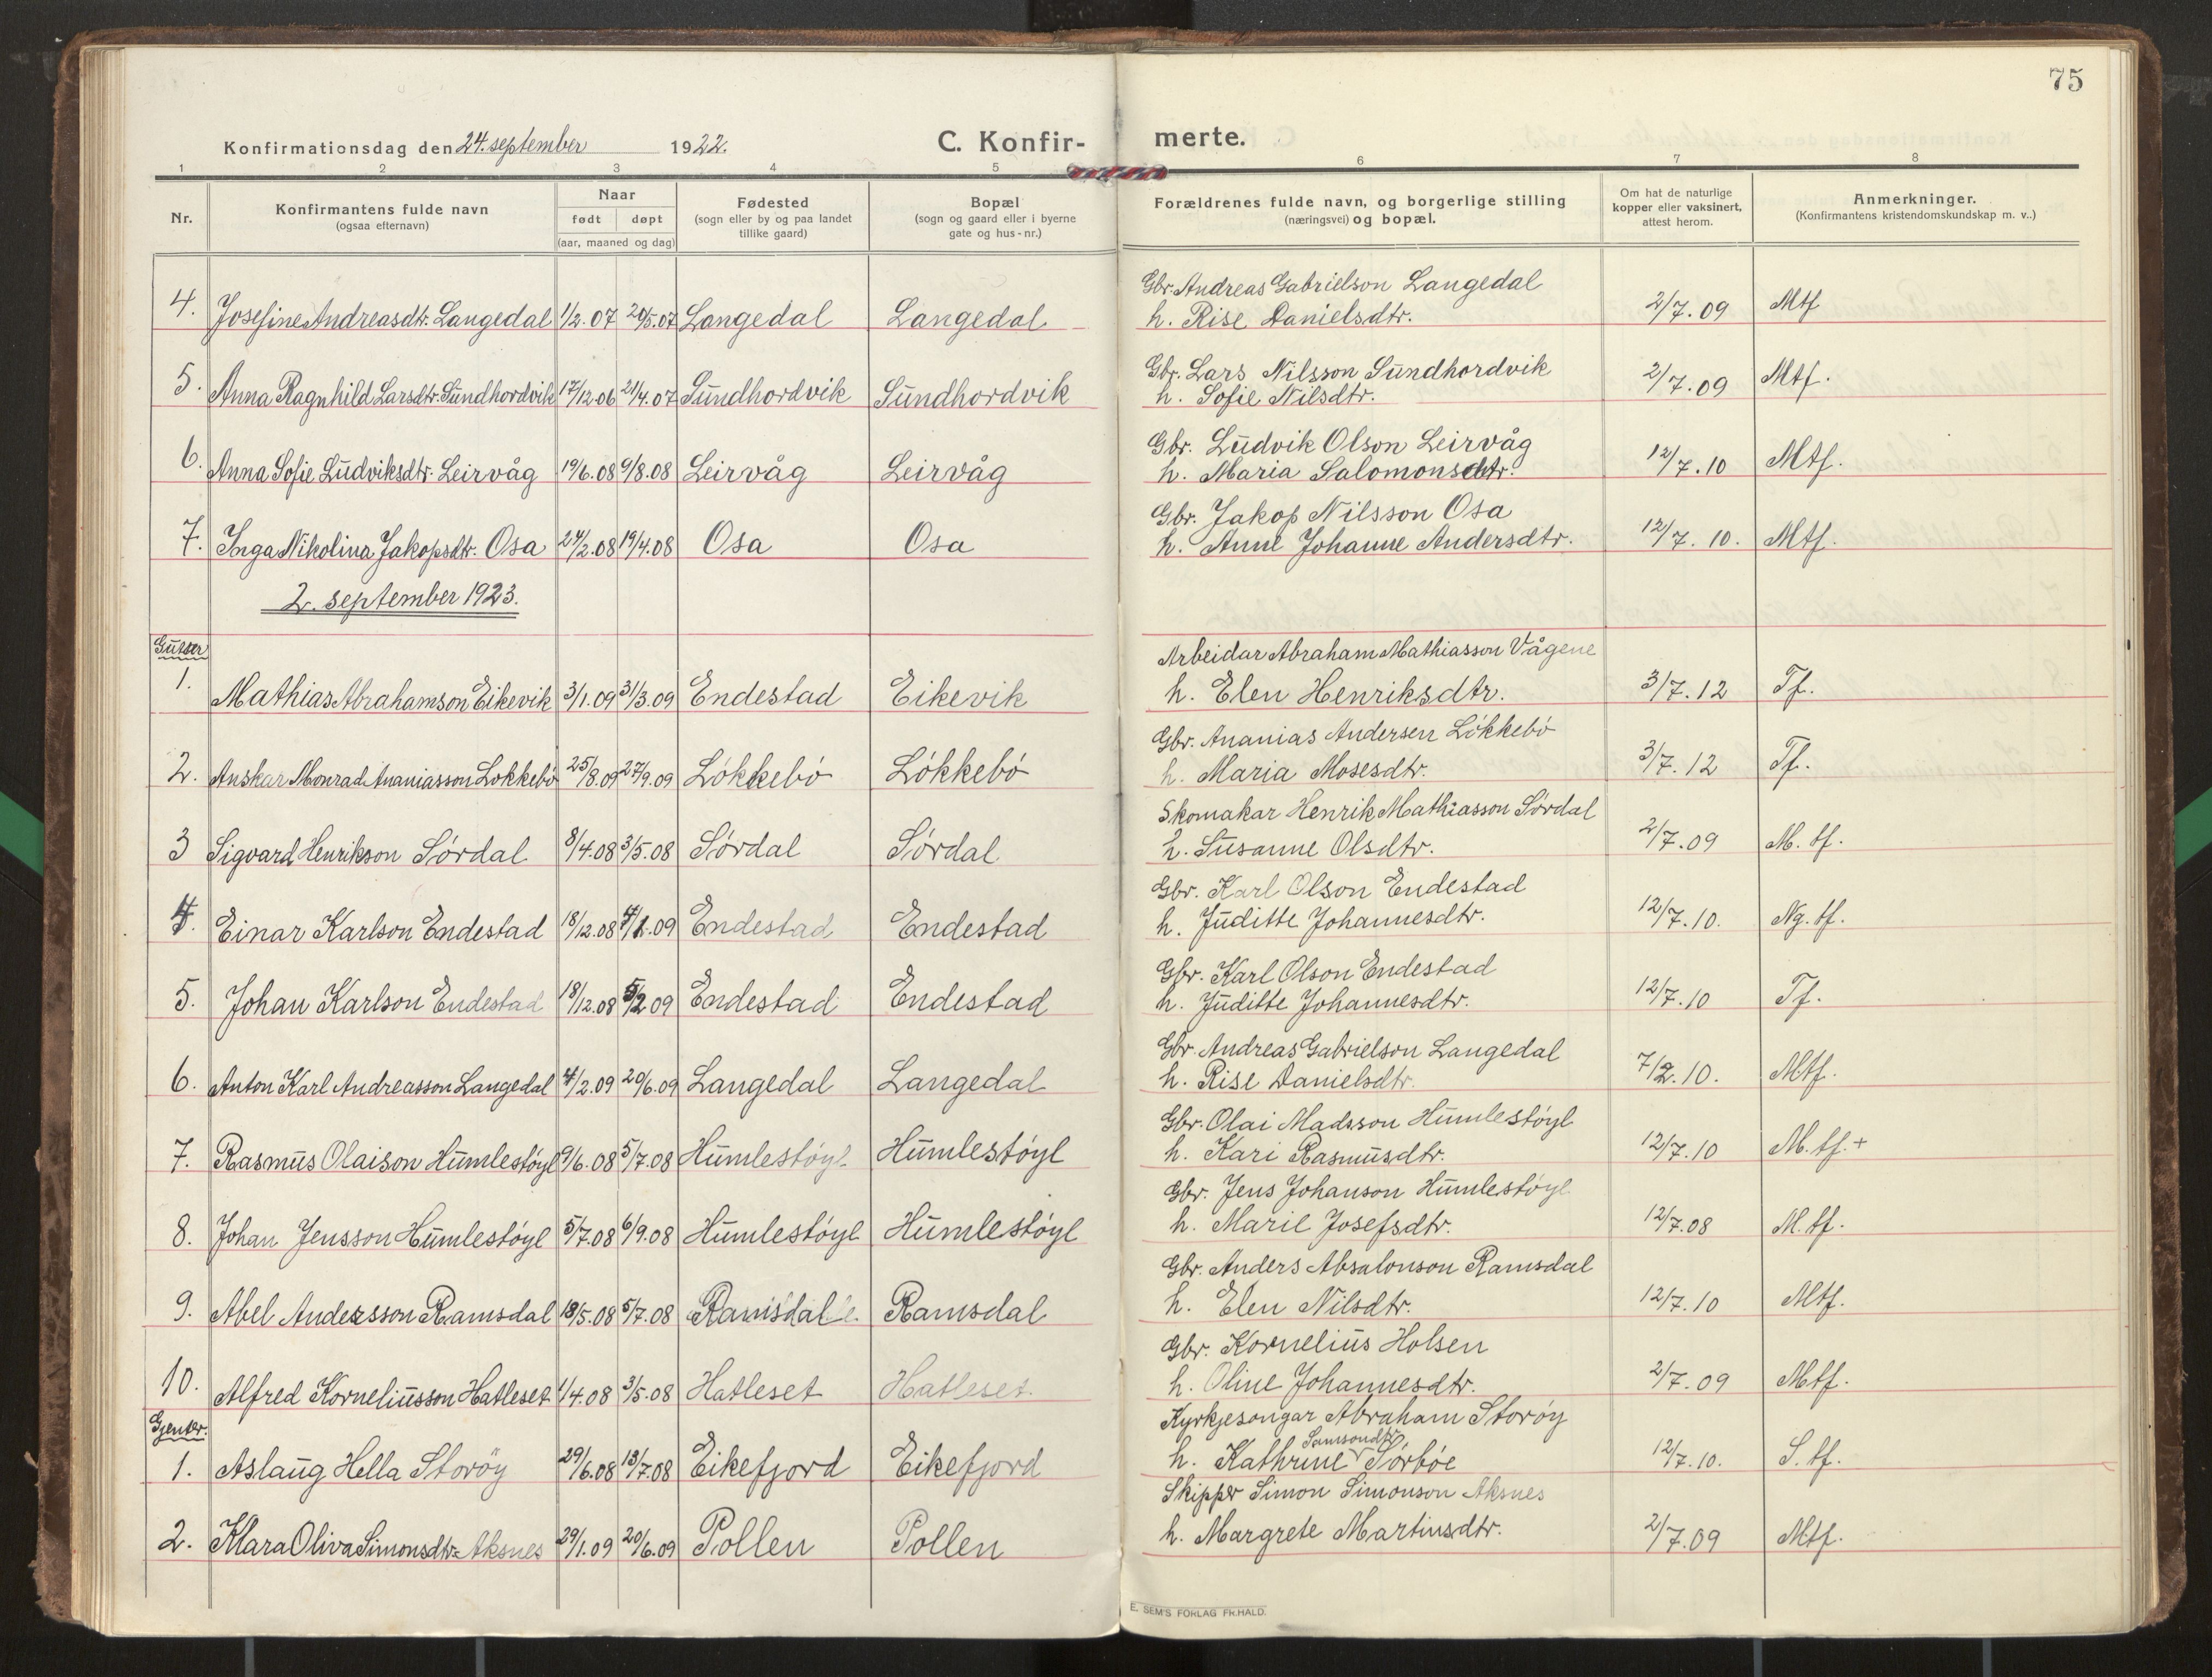 75
Konfirmationsdag den 24. september 1922.
C. Konfir- merte.
1 2 3 4 5 6 7 8
Nr.
Konfirmantens fulde navn
(ogsaa efternavn)
Naar
født døpt
(aar, maaned og dag)
Fødested
(sogn eller by og paa landet
tillike gaard)
Bopæl
(sogn og gaard eller i byerne
gate og hus-nr.)
Forældrenes fulde navn, og borgerlige stilling
(næringsvei) og bopæl.
Om hat de naturlige
kopper eller vaksinert,
attest herom.
Anmerkninger.
(Konfirmantens kristendomskundskap m. v..)
Gbr. Andreas Gabrielson Langedal
4. Josefine Andreasdtr. Langedal 1/2.07 20/5.07 Langedal Langedal h. Rise Danielsdtr. 2/7.09 Mtf
Gbr. Lars Nilsson Sundhordvik
5. Anna Ragnhild Larsdtr. Sundhordvik 17/12.06 21/4.07 Sundhordvik Sundhordvik h. Sofie Nilsdtr. 2/7.09 Mtf.
Gbr. Ludvik Olson Leirvåg
6. Anna Sofie Ludviksdtr. Leirvåg 19/6.08 9/8.08 Leirvåg Leirvåg h. Maria Salomonsdtr. 12/7.10 Mtf.
Gbr. Jakop Nilsson Osa
7. Inga Nikolina Jakopsdtr. Osa 24/2.08 19/4.08 Osa Osa h. Anne Johanne Andersdtr. 12/7.10. Mtf.
2. september 1923.
Gutter
Arbeidar Abraham Mathiasson Vågene
1. Mathias Abrahamson Eikevik 3/1.09 31/3.09 Endestad Eikevik h. Elen Henriksdtr. 3/7.12 Tf.
Gbr. Ananias Andersen Løkkebø
2. Anskar Monrad Ananiasson Løkkebø 25/8.09 27/9.09 Løkkebø Løkkebø h. Maria Mosesdtr. 3/7.12 Tf.
Skomakar Henrik Mathiasson Sørdal
3 Sigvard Henrikson Sørdal 8/4.08 3/5.08 Sørdal Sørdal h. Susanne Olsdtr. 2/7.09 M.tf.
Gbr. Karl Olson Endestad
4. Einar Karlson Endestad 18/12.08 09 Endestad Endestad h. Juditte Johannesdtr. 12/7.10. Ng.tf.
Gbr. Karl Olson Endestad
5. Johan Karlson Endestad 18/12.08 5/2 09 Endestad Endestad h. Juditte Johannesdtr. 12/7.10 Tf.
Gbr. Andreas Gabrielson Langedal
6. Anton Karl Andreasson Langedal 4/2.09 20/6.09 Langedal Langedal h. Rise Danielsdtr. 7/2.10. Mtf.
Gbr. Olai Madsson Humlestøyl
7. Rasmus Olaison Humlestøyl 9/6.08 5/7.08 Humlestøyl Humlestøyl h. Kari Rasmusdtr. 12/7.10 M.tf.+
Gbr. Jens Johanson Humlestøyl
8. Johan Jensson Humlestøyl 5/7.08 6/9.08 Humlestøyl Humlestøyl h. Marie Josefsdtr. 12/7.08 M.tf.
Gbr. Anders Absalonson Ramsdal
9. Abel Andersson Ramsdal 18/5.08 5/7.08 Ramsdal Ramsdal h. Elen Nilsdtr. 12/7.10 Mtf.
Gbr. Kornelius Holsen
10. Alfred Korneliusson Hatleset 1/4.08 3/5.08 Hatleset Hatleset. h. Oline Johannesdtr. 2/7.09 Mtf.
Gjenter.
Kyrkjesongar Abraham Storøy
Samsondtr
1. Aslaug Hella Storøy 29/6.08 13/7.08 Eikefjord Eikefjord h. Kathrine Sørbøe 12/7.10. S.tf.
Skipper Simon Simonson Aksnes
2. Klara Oliva Simonsdtr. Aksnes 29/1.09 20/6.09 Pollen Pollen h. Margrete Martinsdtr. 2/7.09 Mtf.
E. SEM'S FORLAG FR.HALD.